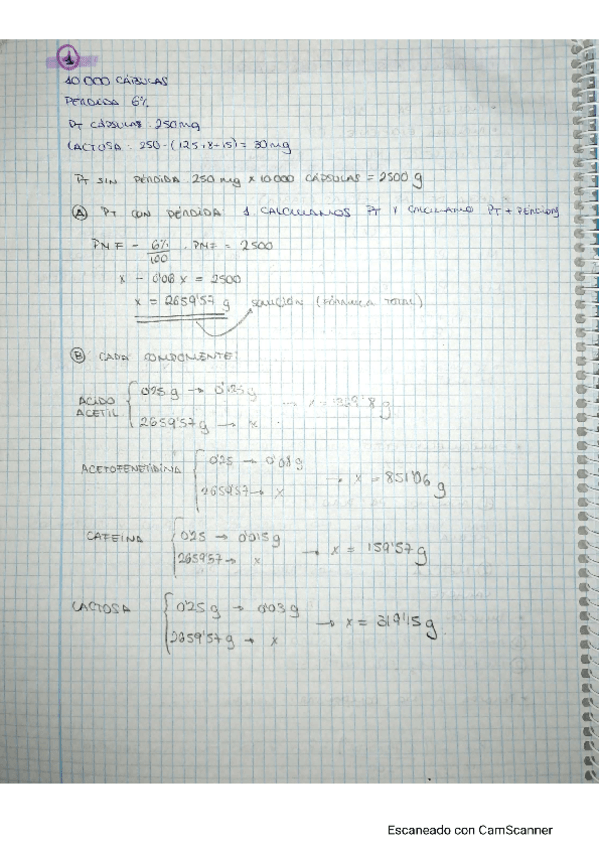 1
10 000 CÁPSULAS
PÉRDIDA 6%
PT CÁPSULAS: 250 mg
LACTOSA: 250 - (125+8+15) = 30 mg
PT SIN PÉRDIDA 250 mg x 10000 CÁPSULAS = 2500 g
A PT CON PÉRDIDA 1. CALCULAMOS PT Y CALCULAMO PT + PÉRDIDAS
PNF - 6%/100 · PNF = 2500
x - 0'06 x = 2500
x = 2659'57 g SOLUCIÓN (FÓRMULA TOTAL)
B CADA COMPONENTE:
ACIDO ACETIL
0'25 g → 0'125 g
2659'57 g → x
→ x = 1329'8 g
ACETOFENETIDINA
0'25 → 0'08 g
2659'57 → x
→ x = 851'06 g
CAFEINA
0'25 → 0'015 g
2659'57 → x
→ x = 159'57 g
LACTOSA
0'25 g → 0'03 g
2659'57 g → x
→ x = 319'15 g.
Escaneado con CamScanner